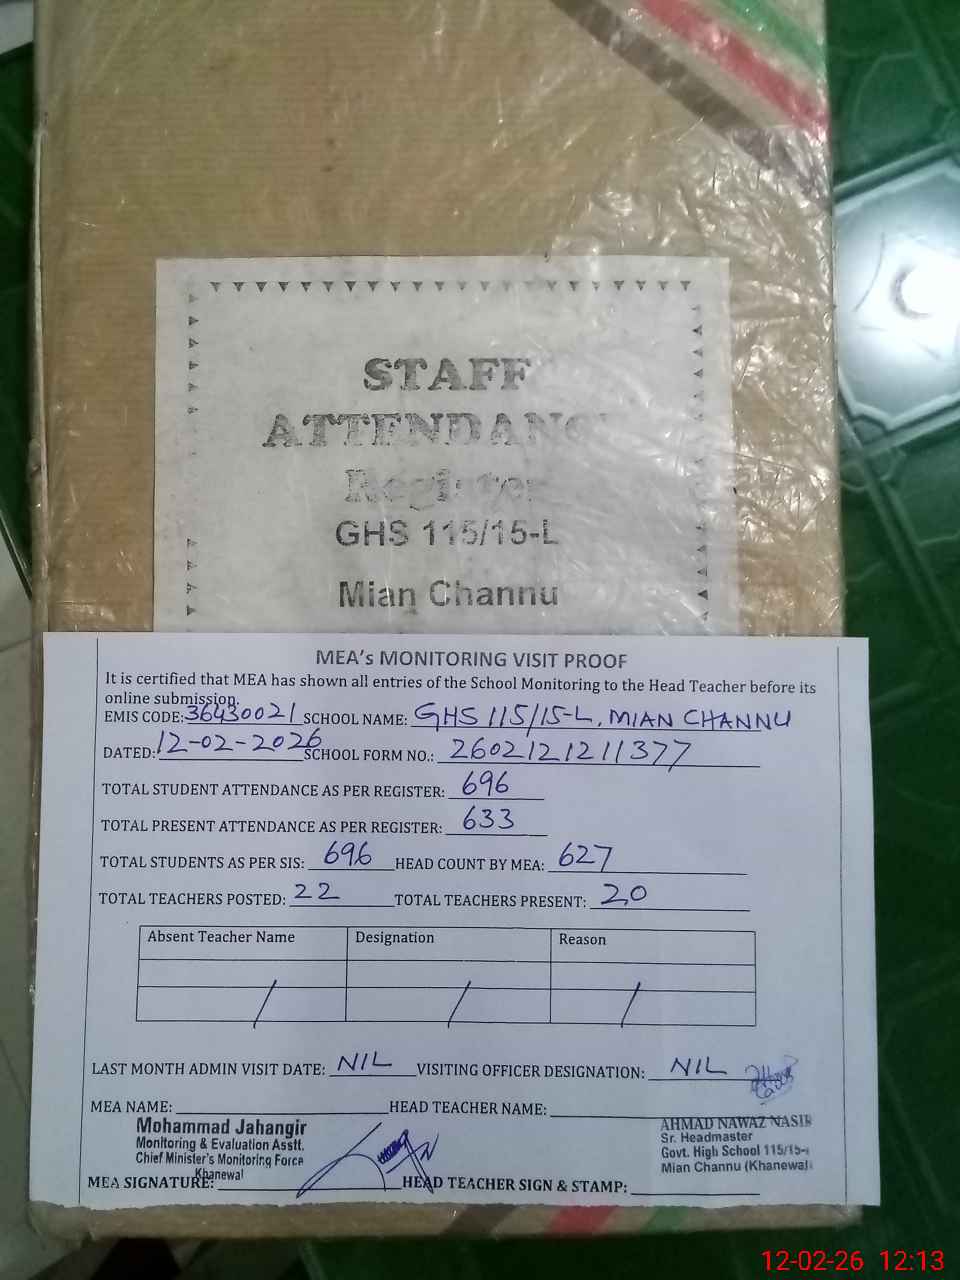 STAFF
ATTENDANC
Register
GHS 115/15-L
Mian Channu
MEA's MONITORING VISIT PROOF
It is certified that MEA has shown all entries of the School Monitoring to the Head Teacher before its
online submission.
EMIS CODE: 36430021 SCHOOL NAME: GHS 115/15-L, MIAN CHANNU
DATED: 12-02-2026 SCHOOL FORM NO.: 2602121211377
TOTAL STUDENT ATTENDANCE AS PER REGISTER: 696
TOTAL PRESENT ATTENDANCE AS PER REGISTER: 633
TOTAL STUDENTS AS PER SIS: 696 HEAD COUNT BY MEA: 627
TOTAL TEACHERS POSTED: 22 TOTAL TEACHERS PRESENT: 20
Absent Teacher Name Designation Reason
LAST MONTH ADMIN VISIT DATE: NIL VISITING OFFICER DESIGNATION: NIL
MEA NAME: HEAD TEACHER NAME:
Mohammad Jahangir
Monitoring & Evaluation Asstt.
Chief Minister's Monitoring Force
Khanewal
AHMAD NAWAZ NASIR
Sr. Headmaster
Govt. High School 115/15-
Mian Channu (Khanewal)
MEA SIGNATURE: HEAD TEACHER SIGN & STAMP:
12-02-26 12:13